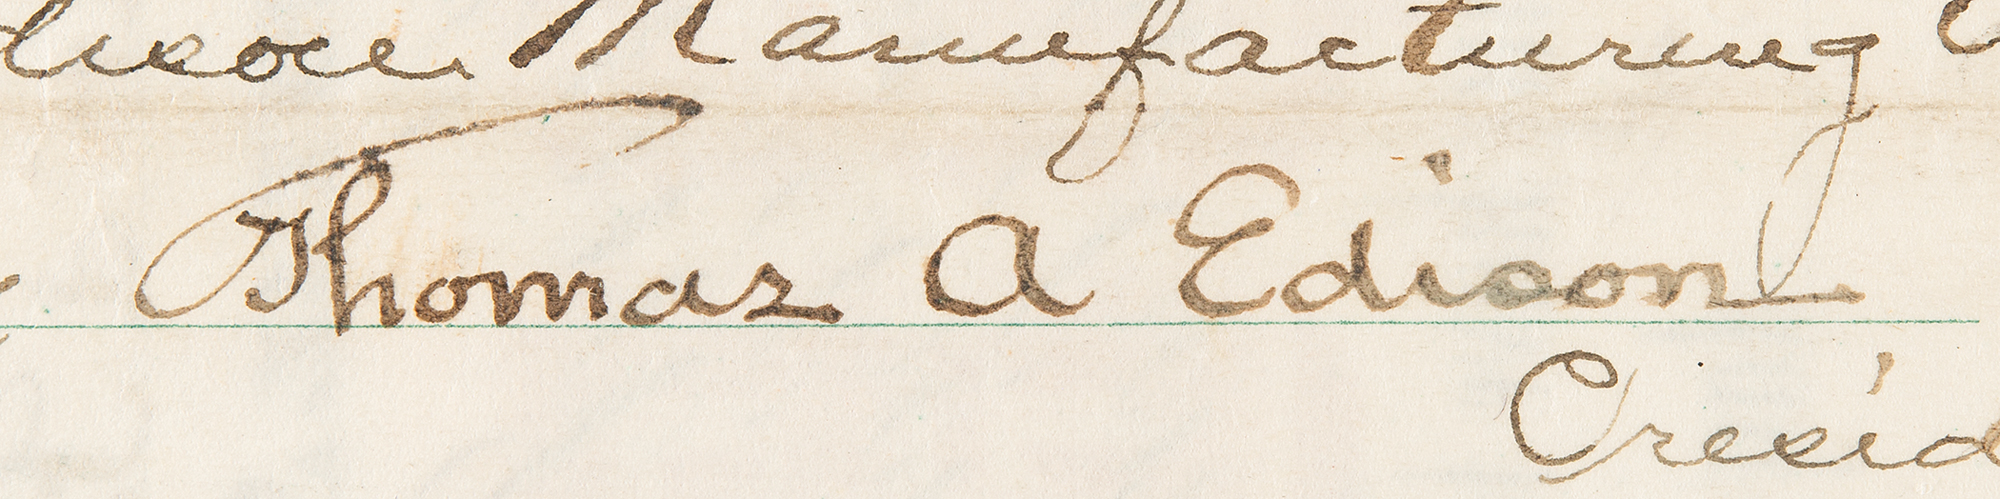 dison Manufacturing C
Thomas A Edison
Presid